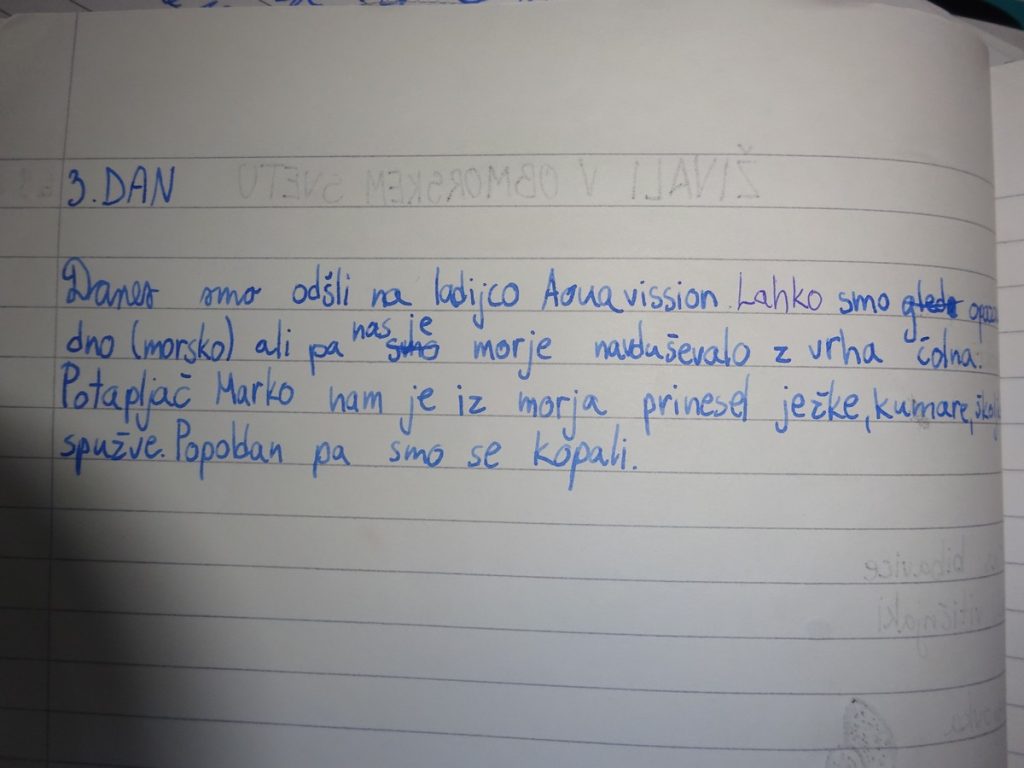 3. DAN
Danes smo odšli na ladijco Aquavission. Lahko smo
nas je
dno (morsko) ali pa smo morje navduševalo z vrha čolna.
Potapljač Marko nam je iz morja prinesel ježke, kumare,
spužve. Popoldan pa smo se kopali.
ŽIVALI V OBMORSKEM SVETU